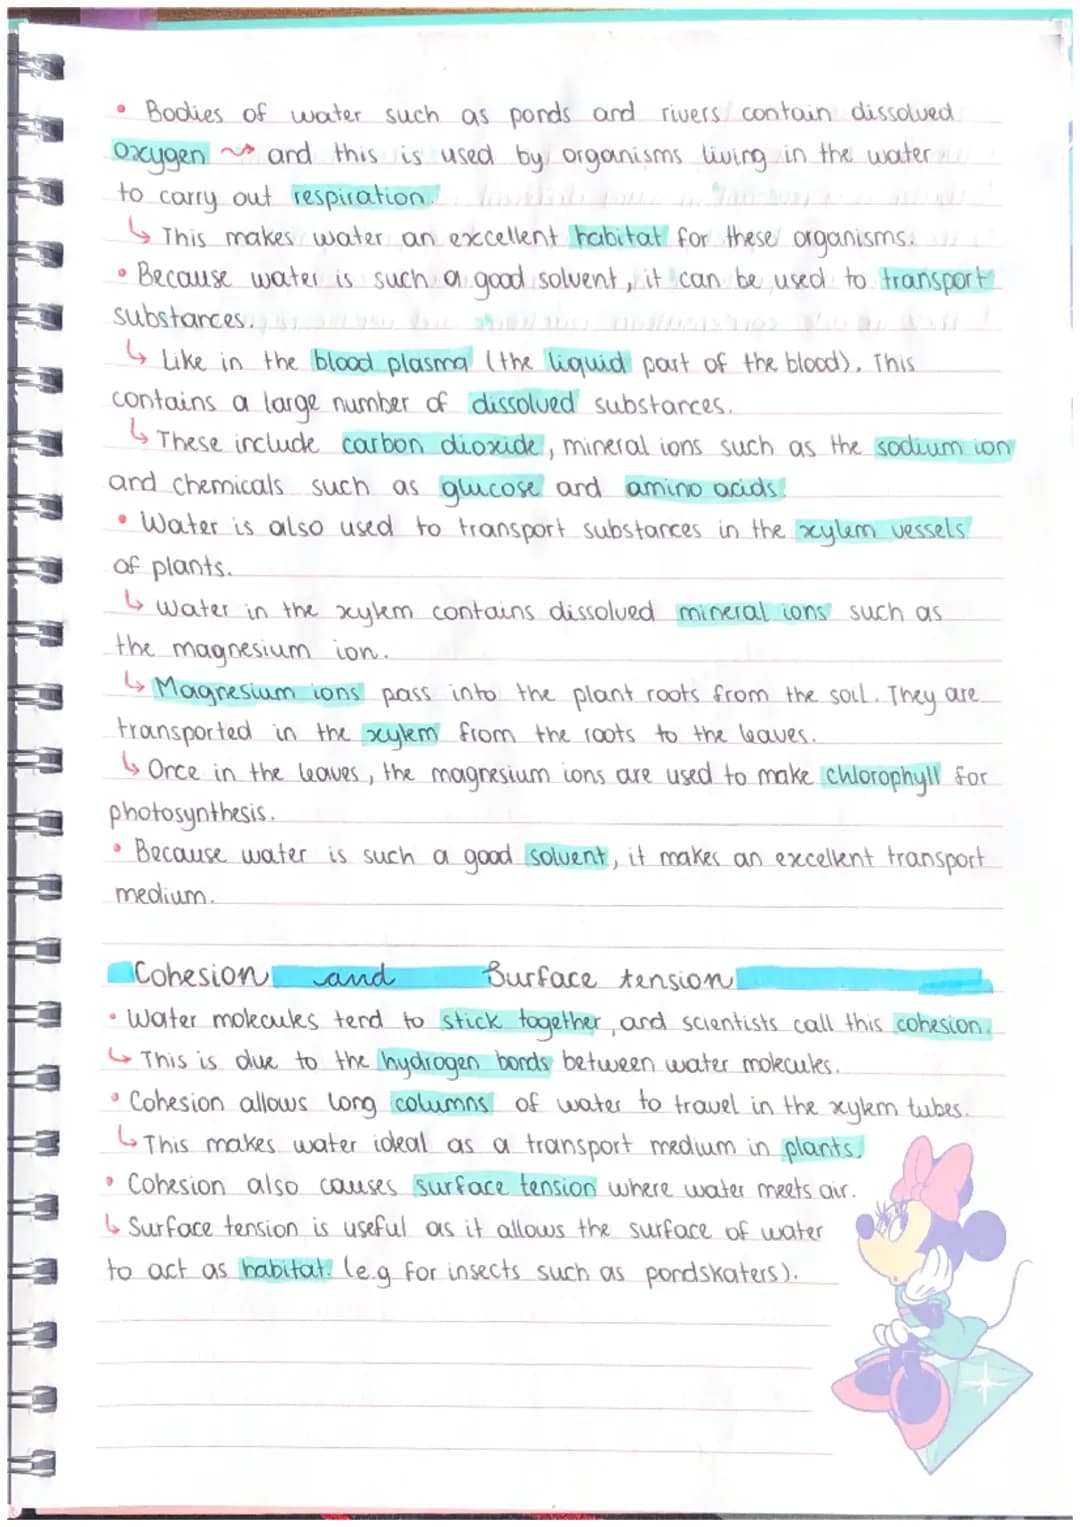 • Bodies of water such as ponds and rivers contain dissolved
oxygen ⇝ and this is used by organisms living in the water
to carry out respiration.
↳ This makes water an excellent habitat for these organisms.
• Because water is such a good solvent, it can be used to transport
substances.
↳ Like in the blood plasma (the liquid part of the blood). This
contains a large number of dissolved substances.
↳ These include carbon dioxide, mineral ions such as the sodium ion
and chemicals such as glucose and amino acids.
• Water is also used to transport substances in the xylem vessels
of plants.
↳ Water in the xylem contains dissolved mineral ions such as
the magnesium ion.
↳ Magnesium ions pass into the plant roots from the soil. They are
transported in the xylem from the roots to the leaves.
↳ Once in the leaves, the magnesium ions are used to make chlorophyll for
photosynthesis.
• Because water is such a good solvent, it makes an excellent transport
medium.
Cohesion and Surface tension
• Water molecules tend to stick together, and scientists call this cohesion.
↳ This is due to the hydrogen bonds between water molecules.
• Cohesion allows long columns of water to travel in the xylem tubes.
↳ This makes water ideal as a transport medium in plants.
• Cohesion also causes surface tension where water meets air.
↳ Surface tension is useful as it allows the surface of water
to act as habitat. (e.g for insects such as pondskaters).